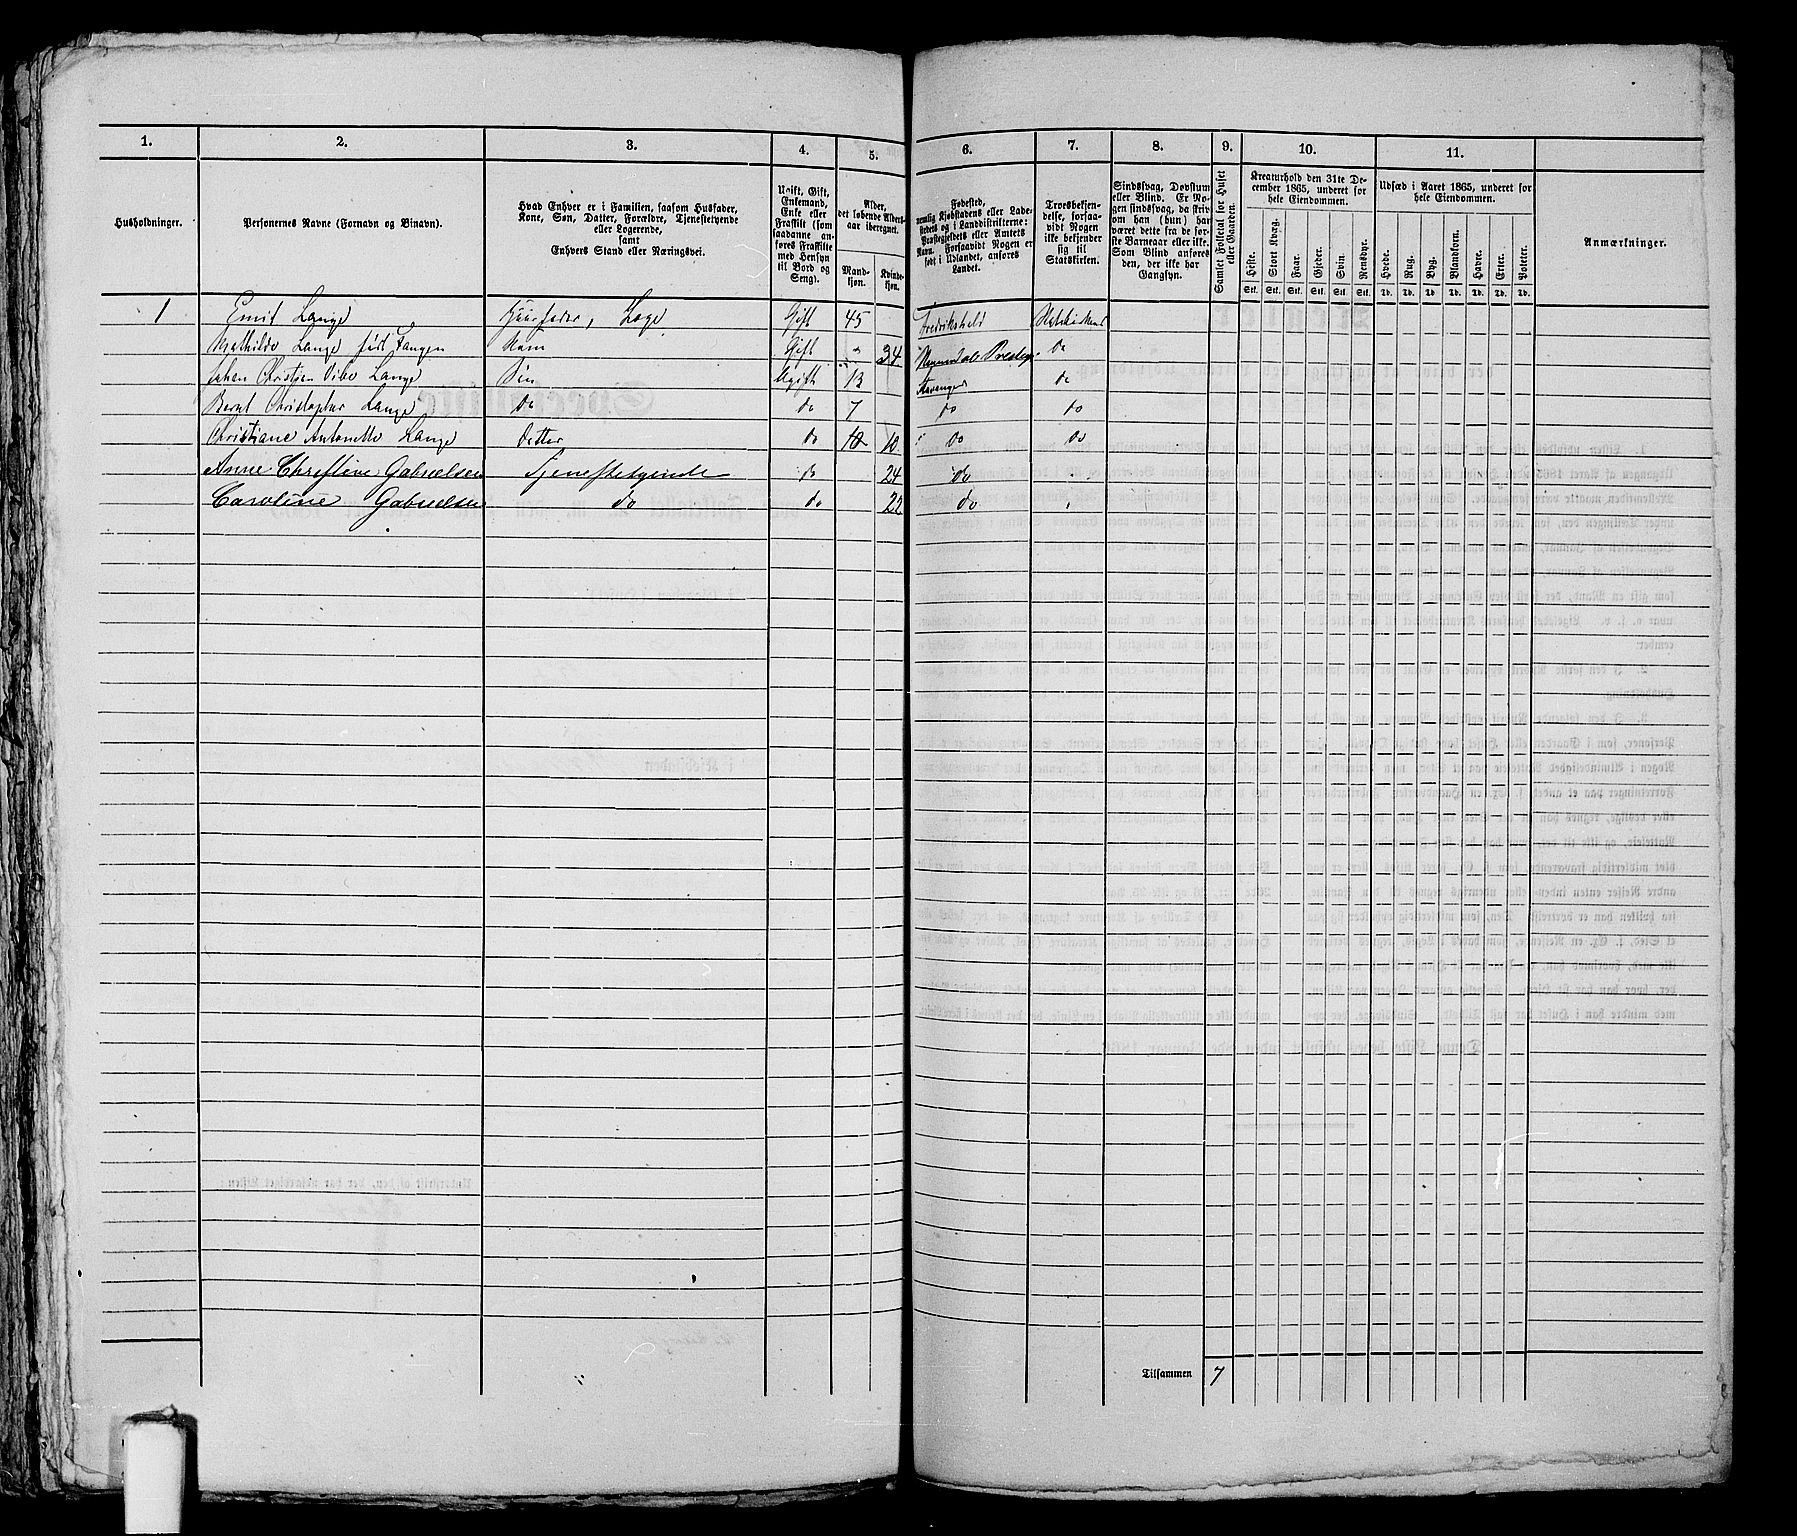 1. 2. 3. 4. 5. 6. 7. 8. 9. 10. 11.
Husholdninger.
Personernes Navne (Fornavn og Binavn).
Hvad Enhver er i Familien, saasom Husfader,
Kone, Søn, Datter, Forældre, Tjenestetyende
eller Logerende,
samt
Enhvers Stand eller Næringsvei.
Ugift, Gift,
Enkemand,
Enke eller
Fraskilt (som
saadanne an-
føres Fraskilte
med Hensyn
til Bord og
Seng).
Alder,
det løbende Alders-
aar iberegnet.
Mand-
kjøn.
Kvinde-
kjøn.
Fødested,
nemlig Kjøbstadens eller Lade-
stedets og i Landdistrikterne:
Præstegjeldets eller Amtets
Navn. Forsaavidt Nogen er
født i Udlandet, anføres
Landet.
Troesbekjen-
delse, forsaa-
vidt Nogen
ikke bekjender
sig til
Statskirken.
Sindssvag, Døvstum
eller Blind. Er No-
gen sindssvag, da skriv
om han (hun) har
været dette fra de før-
ste Barneaar eller ikke.
Som Blind anføres
den, der ikke har
Gangsyn.
Samlet Folketal for Huset
eller Gaarden.
Kreaturhold den 31te De-
cember 1865, underet for
hele Eiendommen.
Heste. Stort Kvæg. Faar. Gjeder. Svin. Rensdyr.
Stk. Stk. Stk. Stk. Stk. Stk.
Udsæd i Aaret 1865, underet for
hele Eiendommen.
Hvede. Rug. Byg. Blandkorn. Havre. Erter. Poteter.
Td. Td. Td. Td. Td. Td. Td.
Anmærkninger.
1 Emil Lange Huusfader, Læge Gift 45 Fredrikshald Statskirken
Mathilde Lange født Fangen Kone Gift 34 do
Johan Christian Vibe Lange Søn Ugift 13 Stavanger do
Bernt Christopher Lange do do 7 do do
Christiane Antonette Lange Datter do 10 10 do do
Anne Christine Gabrielsen Tjenestetyende do 24 do
Caroline Gabrielsen do do 22 do
Tilsammen 7